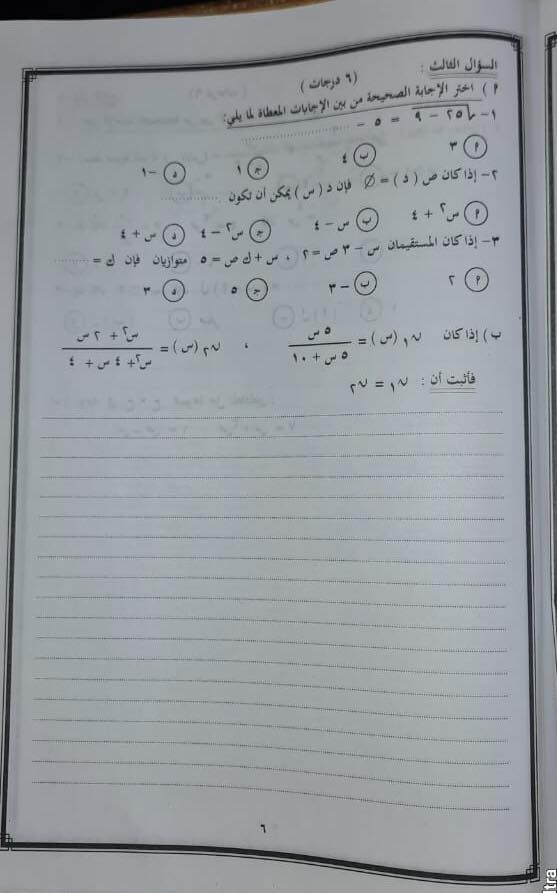 السؤال الثالث :
(٦ درجات)
٢) اختر الإجابة الصحيحة من بين الإجابات المعطاة لما يلي:
١- √٢٥ - ٩ = ٥ - ............
أ ٣ ب ٤ ج ١ د -١
٢- إذا كان ص (د) = ∅ فإن د (س) يمكن أن تكون ............
أ س٢ + ٤ ب س - ٤ ج س٢ - ٤ د س + ٤
٣- إذا كان المستقيمان س - ٣ ص = ٢ ، س + ك ص = ٥ متوازيان فإن ك = ............
أ ٢ ب -٣ ج ٥ د ٣
ب) إذا كان ن١ (س) = ٥ س / ٥ س + ١٠ ، ن٢ (س) = س٢ + ٢ س / س٢ + ٤ س + ٤
فأثبت أن : ن١ = ن٢
٦